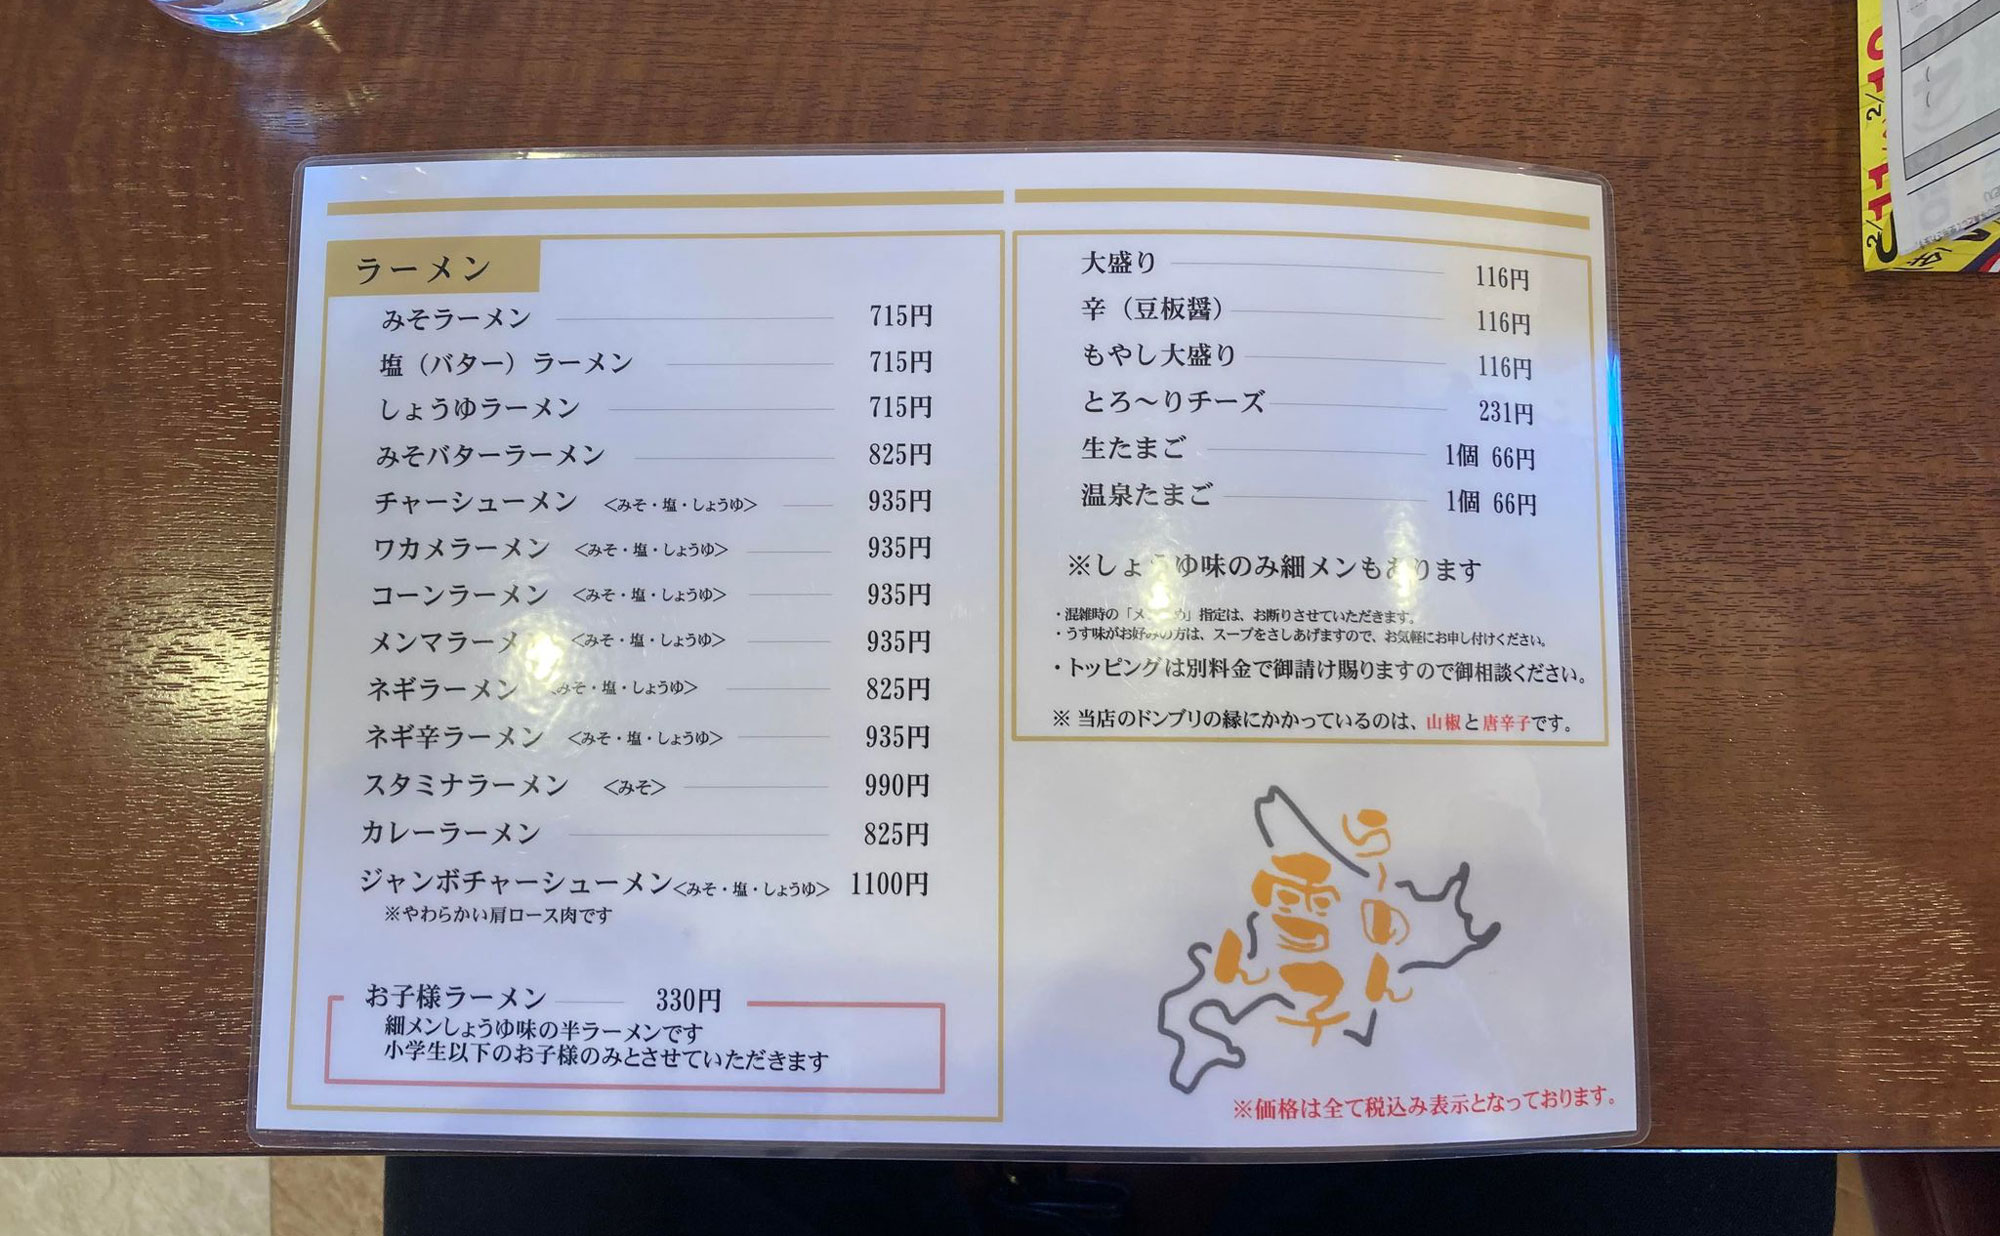 ラーメン
みそラーメン 715円
塩（バター）ラーメン 715円
しょうゆラーメン 715円
みそバターラーメン 825円
チャーシューメン <みそ・塩・しょうゆ> 935円
ワカメラーメン <みそ・塩・しょうゆ> 935円
コーンラーメン <みそ・塩・しょうゆ> 935円
メンマラーメン <みそ・塩・しょうゆ> 935円
ネギラーメン <みそ・塩・しょうゆ> 825円
ネギ辛ラーメン <みそ・塩・しょうゆ> 935円
スタミナラーメン <みそ> 990円
カレーラーメン 825円
ジャンボチャーシューメン<みそ・塩・しょうゆ> 1100円
※やわらかい肩ロース肉です
お子様ラーメン 330円
細メンしょうゆ味の半ラーメンです
小学生以下のお子様のみとさせていただきます
大盛り 116円
辛（豆板醤） 116円
もやし大盛り 116円
とろ〜りチーズ 231円
生たまご 1個 66円
温泉たまご 1個 66円
※しょうゆ味のみ細メンもあります
・混雑時の「メ め」指定は、お断りさせていただきます。
・うす味がお好みの方は、スープをさしあげますので、お気軽にお申し付けください。
・トッピングは別料金で御請け賜りますので御相談ください。
※ 当店のドンブリの縁にかかっているのは、山椒と唐辛子です。
らーめん
雪ん子
※価格は全て税込み表示となっております。